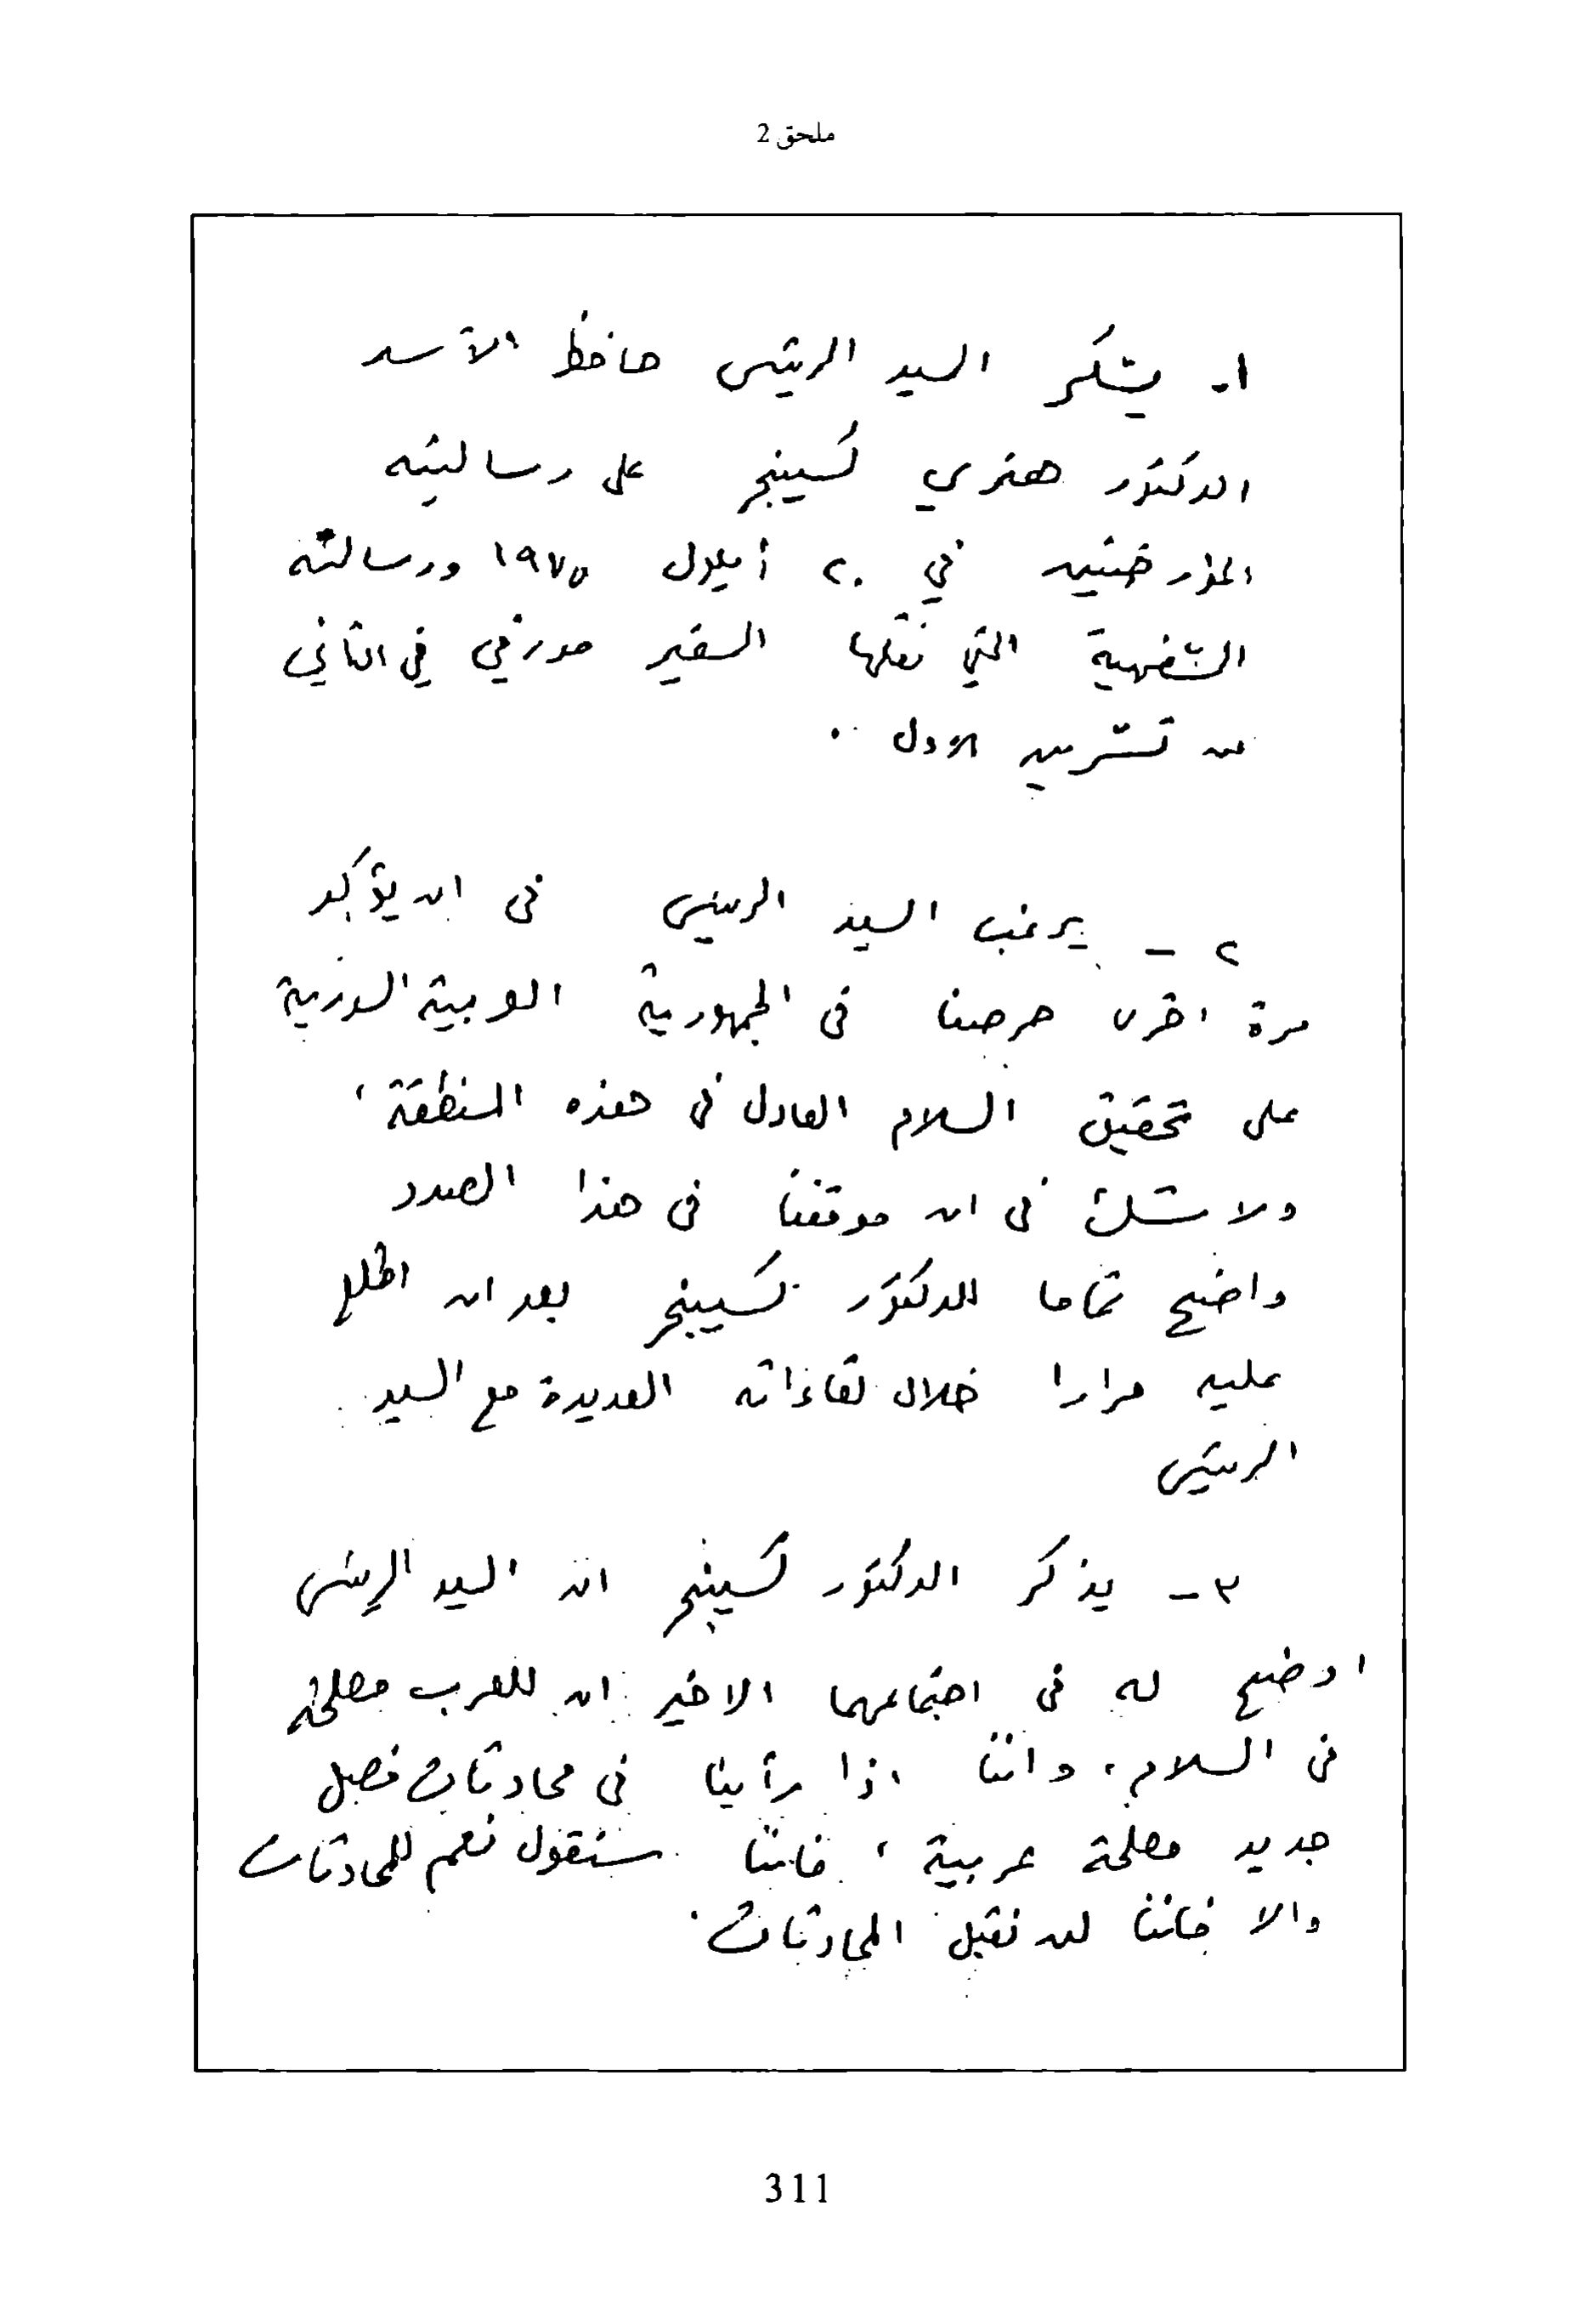 ملحق 2
١- يشكر السيد الرئيس حافظ الأسد
الدكتور هنري كسينجر على رسالتيه
المؤرختين في ٢٠ أيلول ١٩٧٥ ورسالته
الشفهية التي نقلها السفير مورفي في الثاني
من تشرين الاول .
٢ - يرغب السيد الرئيس في ان يؤكد
مرة اخرى حرصنا في الجمهورية العربية السورية
على تحقيق السلام العادل في هذه المنطقة ،
ولا شك في ان موقفنا في هذا الصدد
واضح تماما للدكتور كسينجر بعد ان اطلع
عليه مرارا خلال لقاءاته العديدة مع السيد
الرئيس
٣ - يذكر الدكتور كسينجر ان السيد الرئيس
اوضح له في اجتماعهما الاخير ان للعرب مصلحة
في السلام ، واننا اذا رأينا في محادثات فصل
جديد مصلحة عربية ، فاننا سنقول نعم للمحادثات
والا فاننا لن نقبل المحادثات .
311